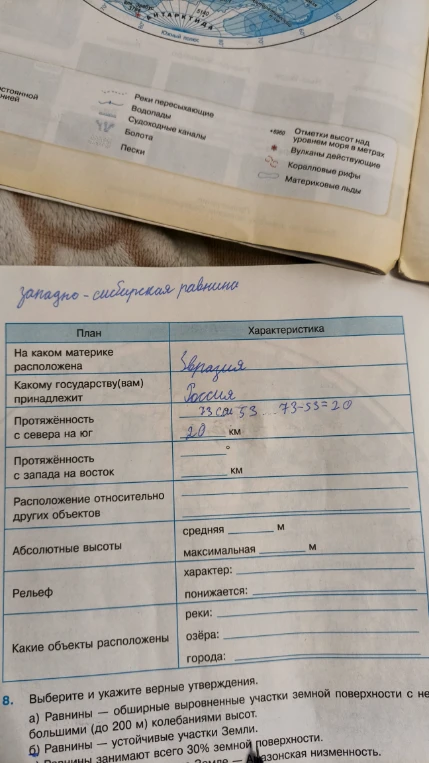 5180
АНТАРКТИДА
Южный полюс
Реки пересыхающие
Водопады
Судоходные каналы
Болота
Пески
Отметки высот над
уровнем моря в метрах
Вулканы действующие
Коралловые рифы
Материковые льды
западно - сибирская равнина
План
Характеристика
На каком материке
расположена
Евразия
Какому государству(вам)
принадлежит
Россия
Протяжённость
с севера на юг
73 сш 53 ... 73-53=20
20 км
Протяжённость
с запада на восток
°
км
Расположение относительно
других объектов
Абсолютные высоты
средняя м
максимальная м
Рельеф
характер:
понижается:
Какие объекты расположены
реки:
озёра:
города:
8. Выберите и укажите верные утверждения.
а) Равнины — обширные выровненные участки земной поверхности с не
большими (до 200 м) колебаниями высот.
б) Равнины — устойчивые участки Земли.
Равнины занимают всего 30% земной поверхности.
Земле — Амазонская низменность.